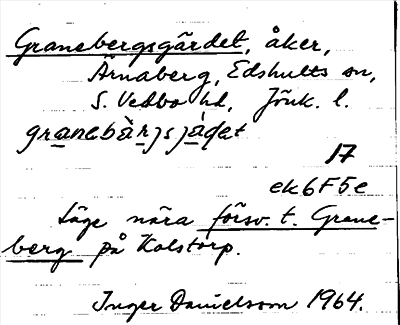 Granebergsgärdet, åker,
Ärnaberg, Edshults sn,
S. Vedbo hd, Jönk. l.
granebàrjsjáḍet
17
ek6F5e
Läge nära försv. t. Grane-
berg på Kolstorp.
Inger Danielsson 1964.